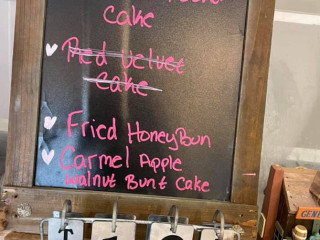 Cake
Red Velvet
Cake
Fried HoneyBun
Carmel Apple
Walnut Bunt Cake